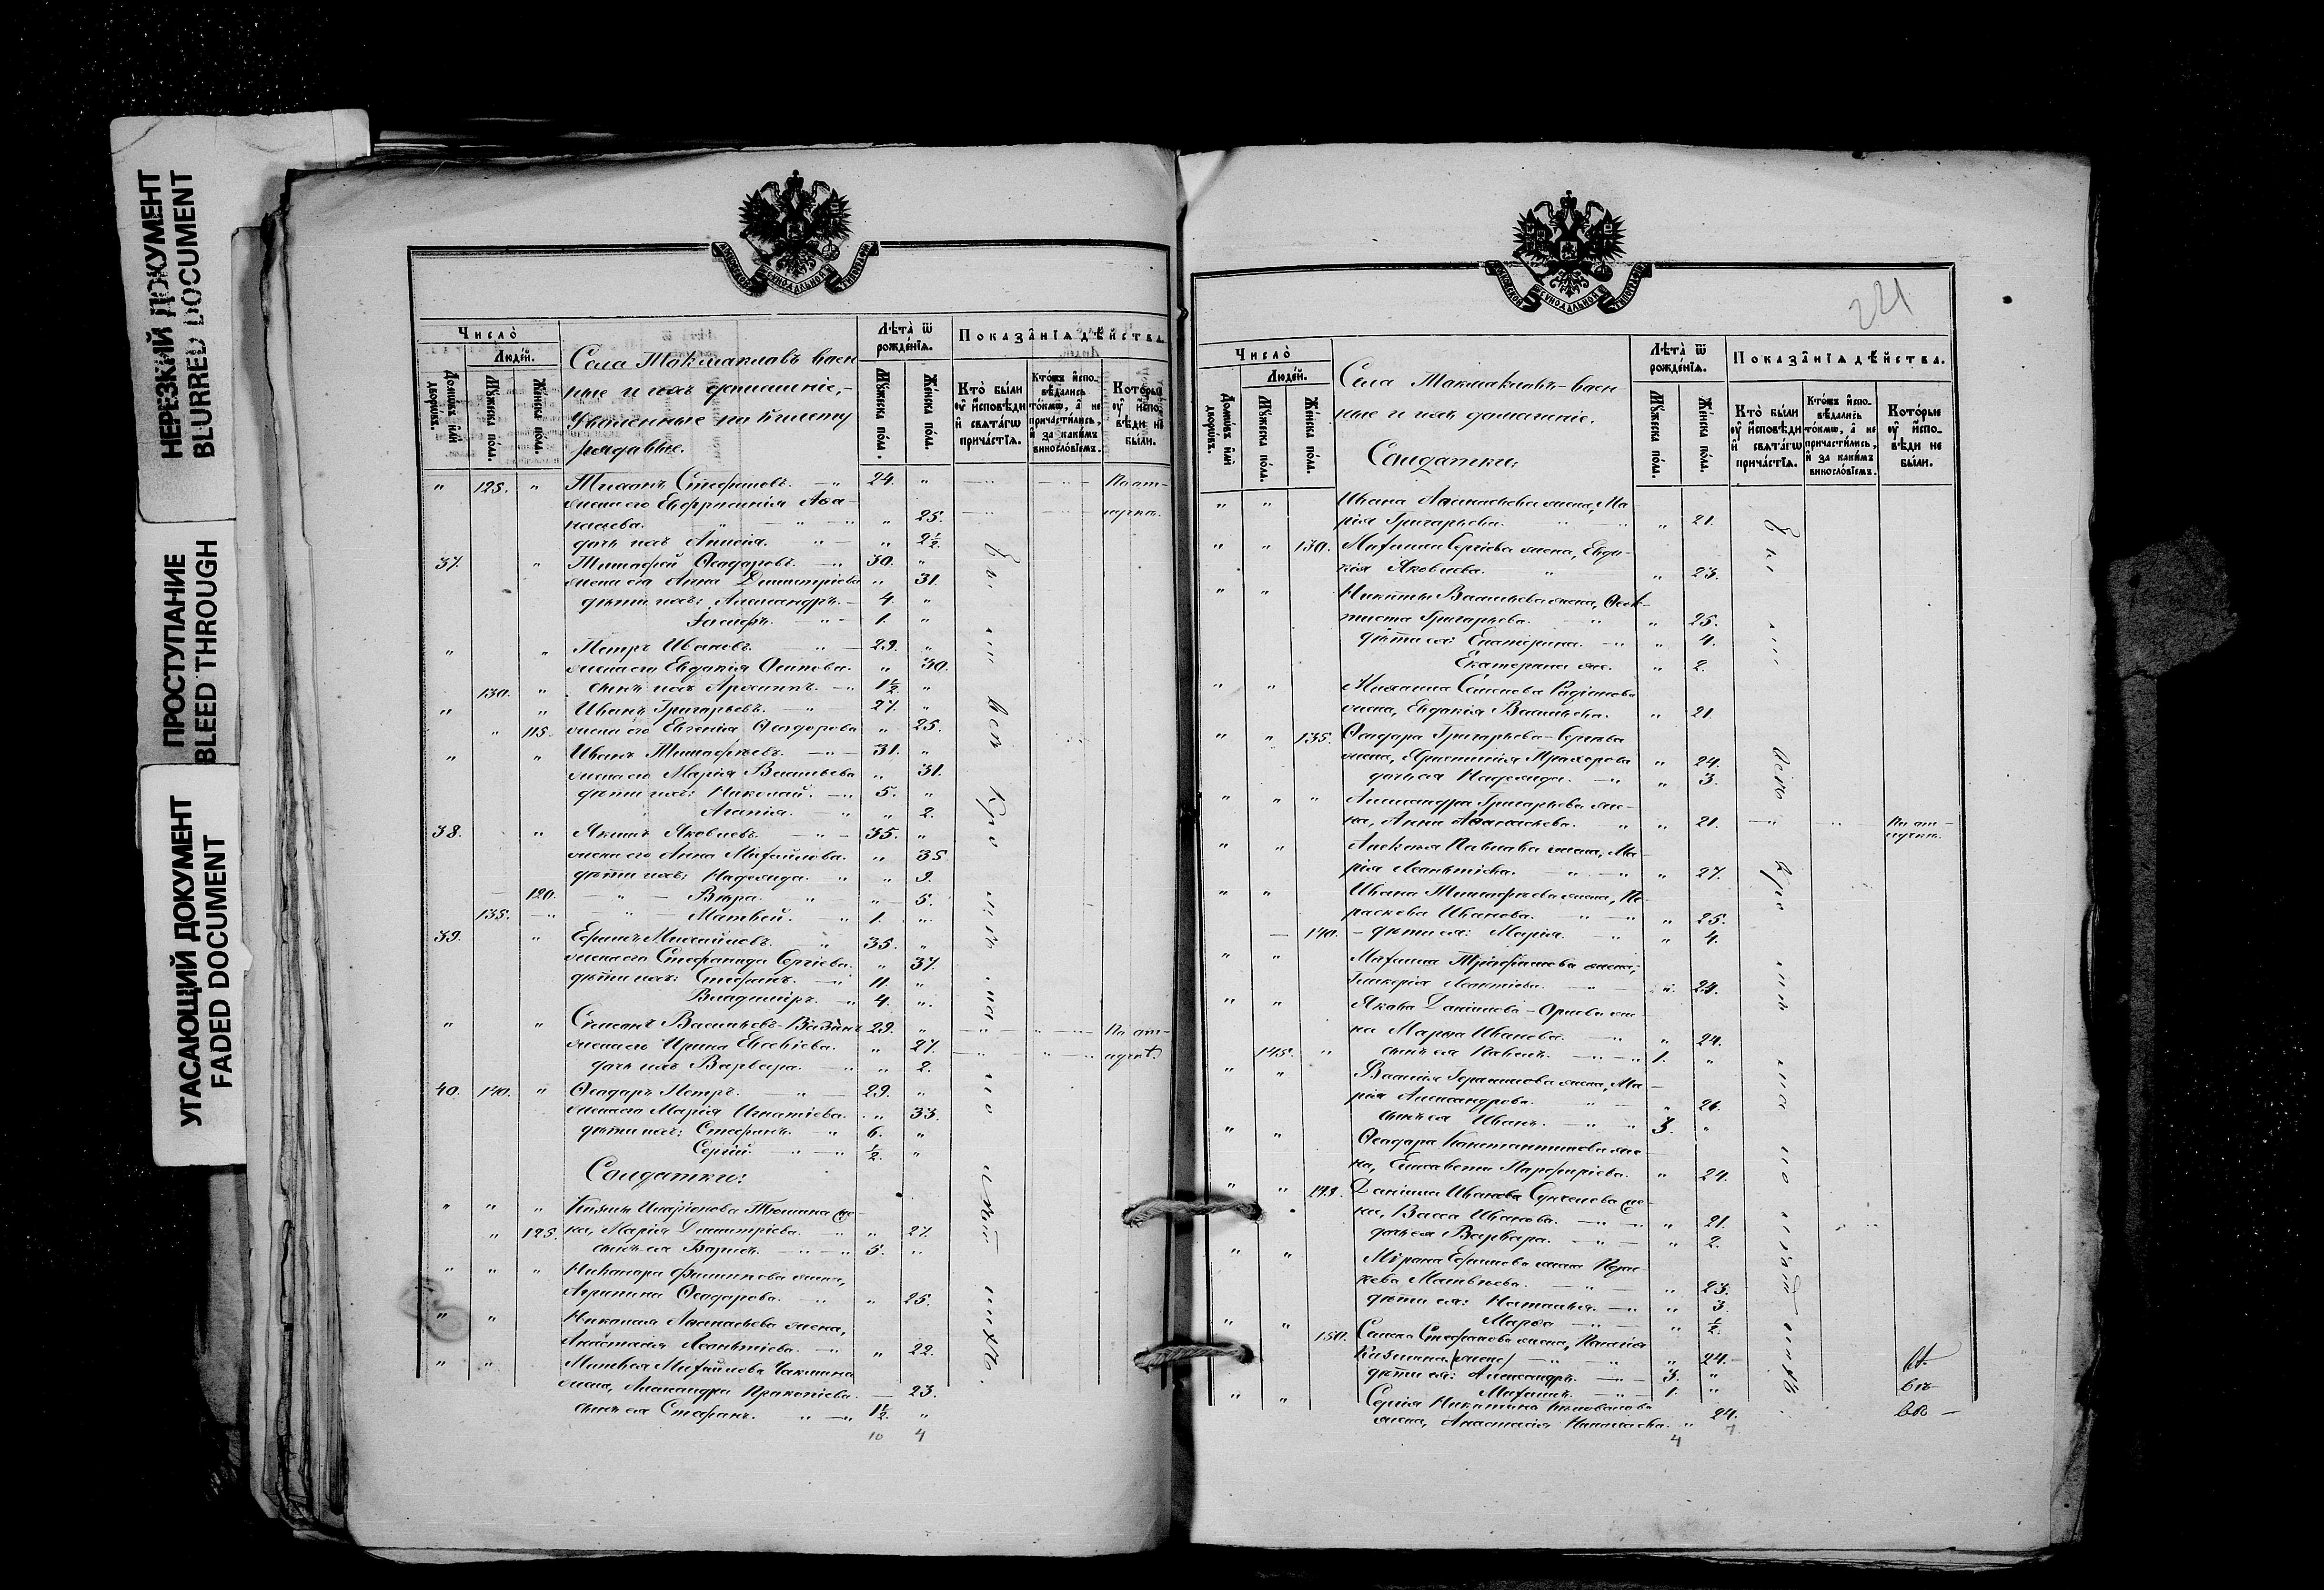 НЕРЕЗКИЙ ДОКУМЕНТ
BLURRED DOCUMENT
ПРОСТУПАНИЕ
BLEED THROUGH
УГАСАЮЩИЙ ДОКУМЕНТ
FADED DOCUMENT
МОСКОВСКОЙ СѴНОДАЛЬНОЙ ТИПОГРАФІИ
Число̀
Люде́й.
Домѡ́въ и҆лѝ дворѡ́въ.
Мꙋ́жеска по́ла.
Же́нска по́ла.
Села Токмаклавъ воен
ные и ихъ домашніе,
Уволенные по билету
рядовые.
Лѣ́та ѿ рожде́нїѧ.
Мꙋ́жеска по́ла.
Же́нска по́ла.
Показа̑нїѧ дѣ́йства.
Кто̀ бы́ли ᲂу҆ и҆сповѣ́ди и҆ свѧта́гѡ прича́стїѧ.
Кто́жъ и҆спо-вѣ́дались то́кмѡ, а҆ не причасти́лись, и҆ за каки́мъ винослѡ́вїемъ.
Кото́рые ᲂу҆ и҆спо-вѣ́ди не бы́ли.
" 125. " Тихонъ Стефановъ. 24. " По от-
жена его Евфросинія Аѳа-
насьева. " 25. лучкѣ.
дочь ихъ Анисія. " 2½.
37. " Тимофей Ѳеодоровъ. 30. "
жена его Анна Димитріева " 31.
дѣти ихъ: Александръ. 4. "
Іосифъ. 1. "
" " Петръ Ивановъ. 29. "
жена его Евдокія Осипова. " 30.
130. " сынъ ихъ Архиппъ. 1½. "
" " Иванъ Григорьевъ. 27. "
" 115. жена его Евгенія Ѳеодорова " 25.
" " Иванъ Тимофѣевъ. 31. "
жена его Марія Васильева " 31.
дѣти ихъ: Николай. 5. "
Агапія. " 2.
38. " Якимъ Яковлевъ. 35. "
жена его Анна Михайлова. " 35
дѣти ихъ: Надежда. " 9.
120. Вѣра. " 5.
135. Матвей. 1. "
39. " Ефимъ Михайловъ. 35. "
жена его Стефанида Сергіева. " 37.
дѣти ихъ: Стефанъ. 11. "
Владиміръ. 4. "
" " Симонъ Васильевъ 29. " По от-
жена его Ирина Евсевіева. " 27. лучкѣ.
дочь ихъ Варвара. " 2.
40. 140. " Ѳеодоръ Петръ. 29. "
жена его Марія Игнатіева. " 33.
дѣти ихъ: Стефанъ. 6. "
Сергій. ½. "
Солдатки:
" " " Козьмы Иларіонова Тюшина же-
" 125. на, Марія Димитріева. " 27.
сынъ ея Борисъ. 5. "
" " " Никанора Филиппова жена,
Агрипина Ѳеодорова. " 25.
" " Николая Аѳанасьева жена,
Анастасія Леонтіева. " 22.
" " Матвея Михайлова жена
жена, Александра Прокопіева. 23.
сынъ ея Стефанъ. 1½. "
10 4
МОСКОВСКОЙ СѴНОДАЛЬНОЙ ТИПОГРАФІИ
221
Число̀
Люде́й.
Домѡ́въ и҆лѝ дворѡ́въ.
Мꙋ́жеска по́ла.
Же́нска по́ла.
Села Токмаклавъ воен
ные и ихъ домашніе.
Солдатки:
Лѣ́та ѿ рожде́нїѧ.
Мꙋ́жеска по́ла.
Же́нска по́ла.
Показа̑нїѧ дѣ́йства.
Кто̀ бы́ли ᲂу҆ и҆сповѣ́ди и҆ свѧта́гѡ прича́стїѧ.
Кто́жъ и҆спо-вѣ́дались то́кмѡ, а҆ не причасти́лись, и҆ за каки́мъ винослѡ́вїемъ.
Кото́рые ᲂу҆ и҆спо-вѣ́ди не бы́ли.
" " Ивана Аѳанасьева жена, Ма-
рія Григорьева. " 21.
" " 130. Михаила Сергіева жена, Евдо-
кія Яковлева. " 23.
" " Никиты Васильева жена, Ѳеок-
тиста Григорьева. " 25.
дѣти ея: Екатерина. " 4.
Екатерина же. " 2.
" " Михаила Семенова Родіонова
жена, Евдокія Васильева. " 21.
" " 135. Ѳеодора Григорьева
жена, Христинія Прохорова " 24.
дочь ея Надежда. " 3.
" " " Александра Григорьева же-
на, Анна Аѳанасьева. " 21. По от-
лучкѣ.
" " Алексѣя Павлова жена, Ма-
рія Леонтіева. " 27.
" " Ивана Тимофѣева жена, Па-
раскева Иванова. " 25.
140. дѣти ея: Марія. " 4.
" " Михаила Трофимова жена,
Гликерія Леонтіева. " 24.
" " Якова Даніилова же-
на Марѳа Иванова. " 24.
145. " сынъ ея Павелъ. 1. "
" " Василія Герасимова жена, Ма-
рія Александрова. " 26.
сынъ ея Иванъ. 3. "
" " Ѳеодора Константинова же-
на, Елисавета Порфиріева. " 24.
" " Даніила Иванова же-
на, Васса Иванова. " 21.
дочь ея Варвара. " 2.
" " Мирона Ефимова жена Пара-
скева Матвѣева. " 23.
дѣти ея: Наталья. " 3.
Марѳа " ½.
" " 150. Семена Стефанова жена, Пелагія
Козьмина (жена) " 24.
дѣти ея: Александръ. 3. "
Михаилъ. 1. "
" " Сергія Никитина
жена, Анастасія " 24.
4